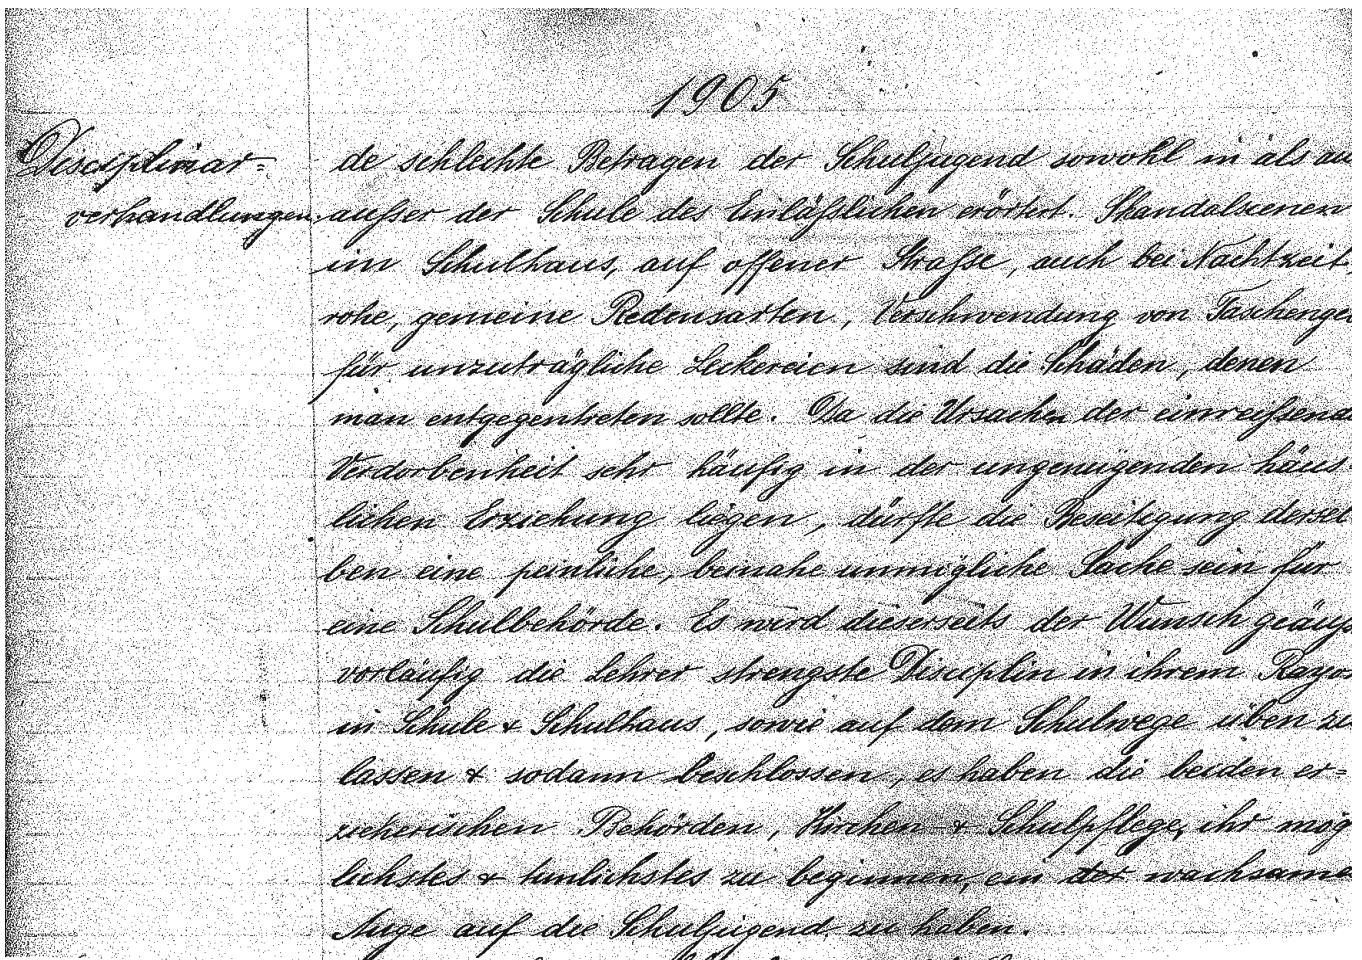 1905
Disciplinar=
verhandlungen.
de schlechte Betragen der Schuljugend sowohl in als au
außer der Schule des Einläßlichen erörtert. Skandalscenen
im Schulhaus, auf offener Straße, auch bei Nachtzeit,
rohe, gemeine Redensarten, Verschwendung von Taschengel
für unzuträgliche Leckereien sind die Schäden, denen
man entgegentreten sollte. Da die Ursachen der einreißend
Verdorbenheit sehr häufig in der ungenügenden häus-
lichen Erziehung liegen, dürfte die Beseitigung dersel
ben eine peinliche, beinahe unmögliche Sache sein für
eine Schulbehörde. Es wird dieserseits der Wunsch geäuß
vorläufig die Lehrer strengste Disciplin in ihrem Rayon
in Schule & Schulhaus, sowie auf dem Schulwege üben zu
lassen & sodann beschlossen, es haben die beiden er=
zieherischen Behörden, Kirchen- & Schulpflege, ihr mög
lichstes & tunlichstes zu beginnen, ein wachsame
Auge auf die Schuljugend zu haben.